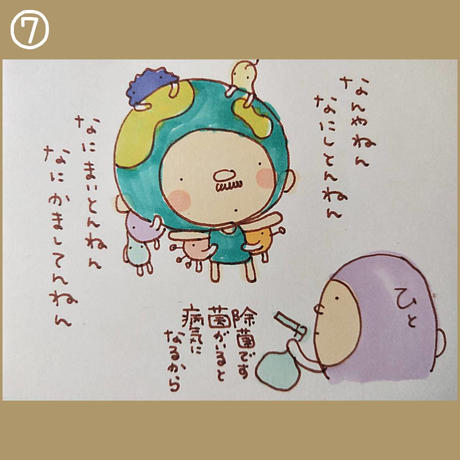 ⑦
なんやねん
なにしとんねん
なにまいとんねん
なにかましてんねん
ひと
除菌です
菌がいると
病気に
なるから